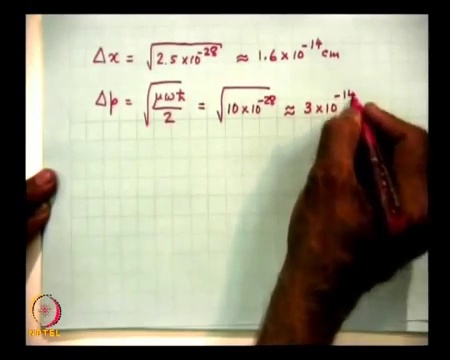 Δx = √(2.5×10⁻²⁸) ≈ 1.6×10⁻¹⁴ cm
Δp = √(μωℏ/2) = √(10×10⁻²⁸) ≈ 3×10⁻¹⁴
NPTEL